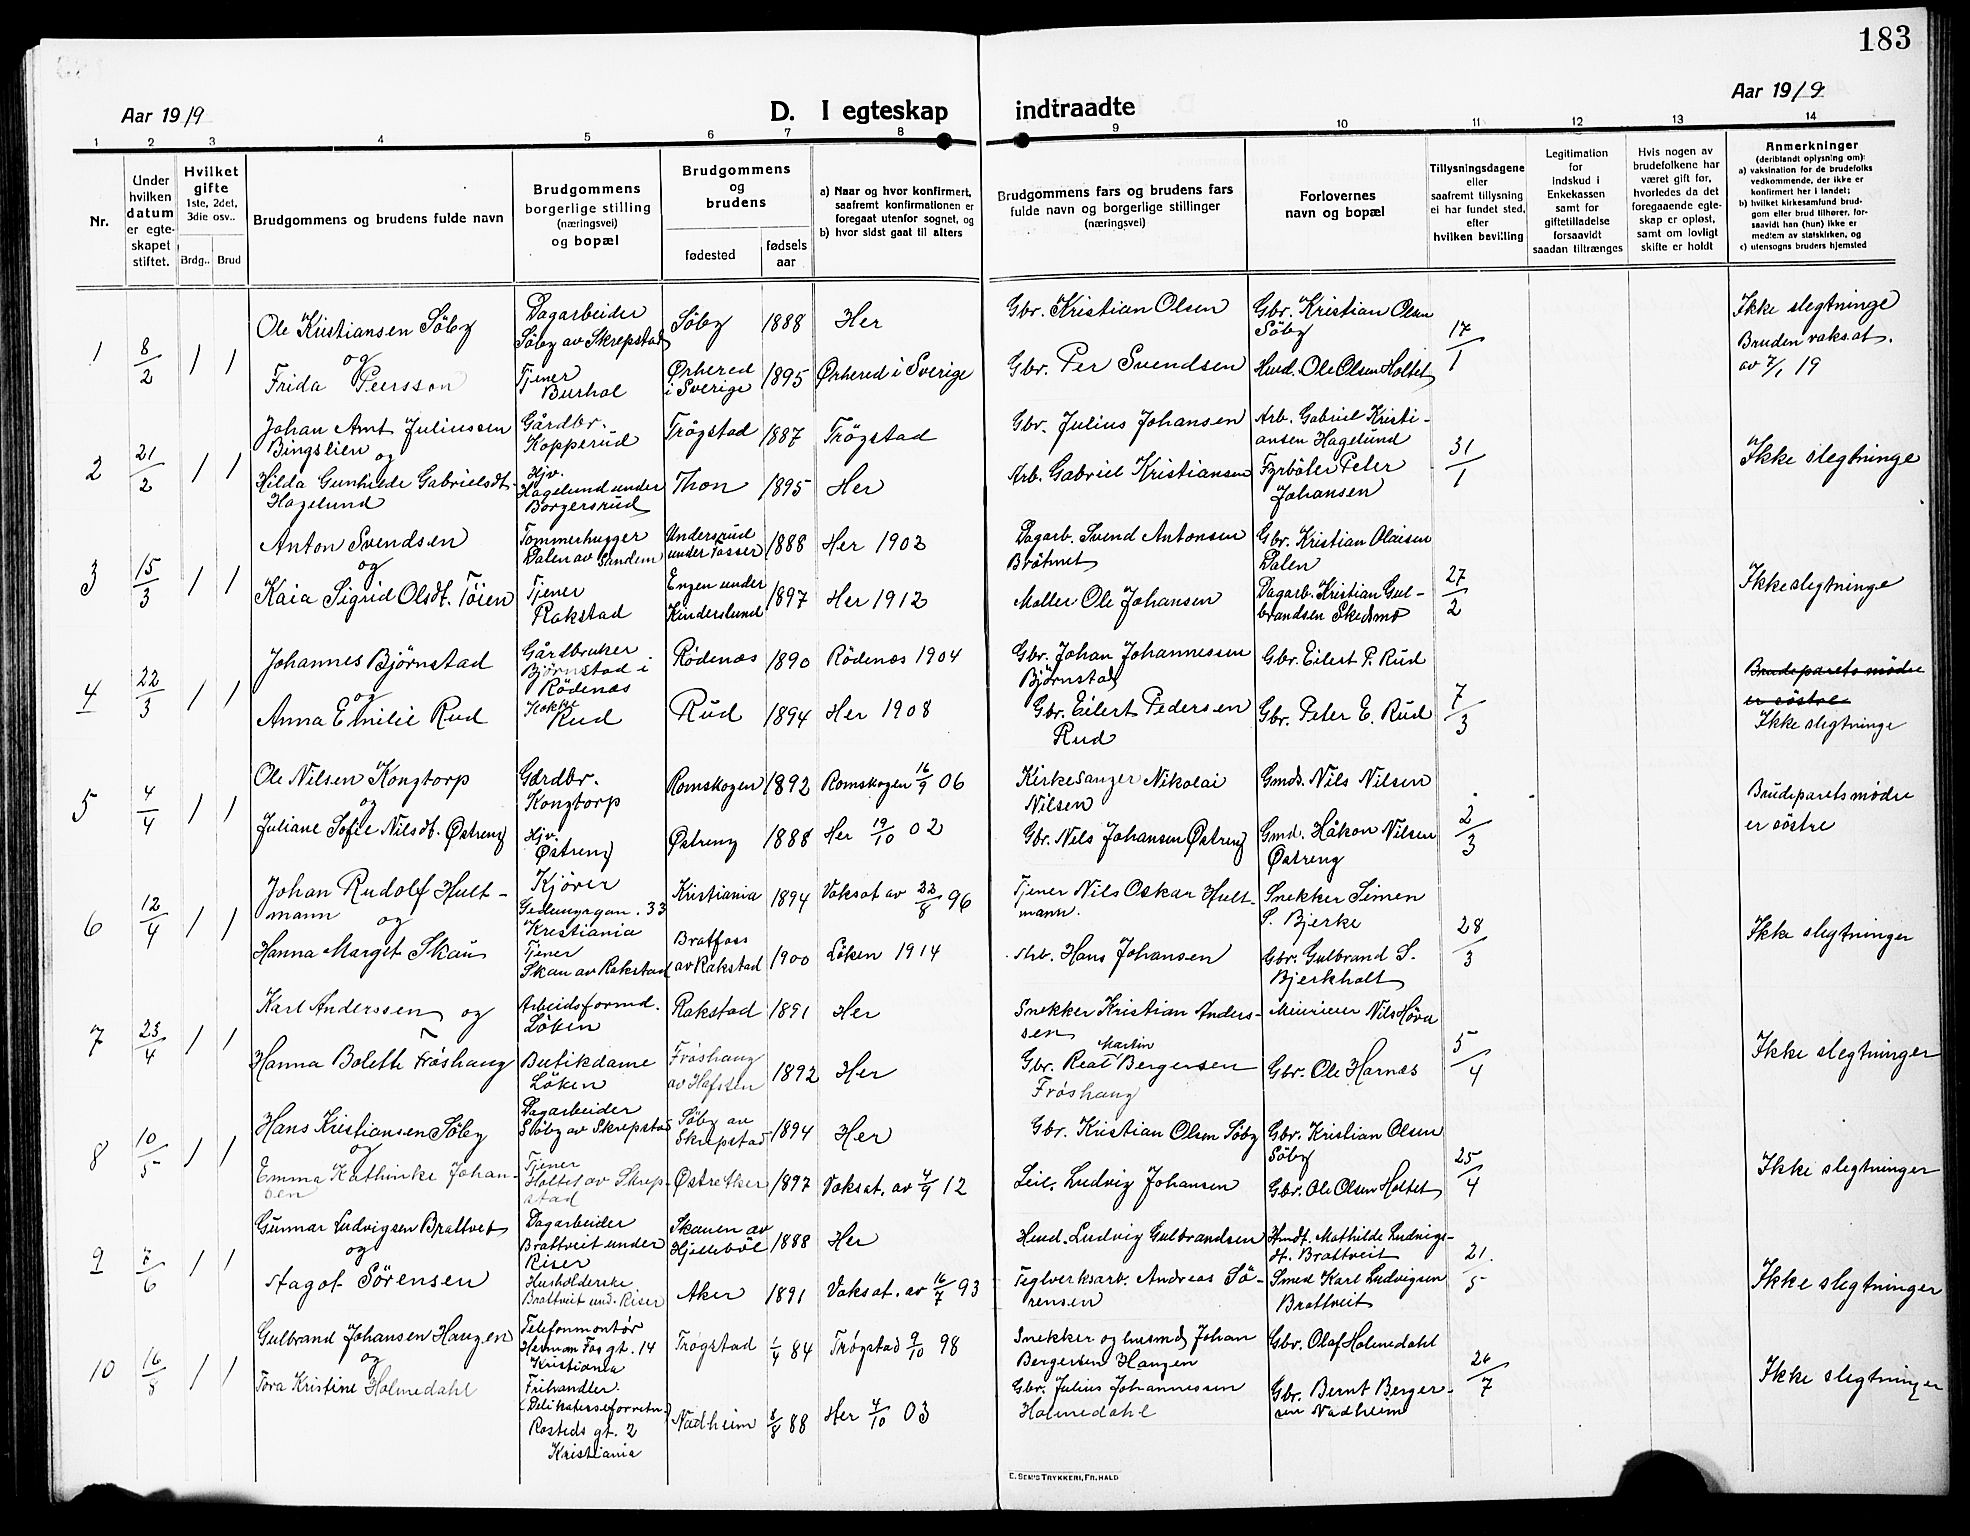 183
Aar 1919
D. I egteskap indtraadte
Aar 1919
1 2 3 4 5 6 7 8 9 10 11 12 13 14
Nr.
Under hvilken datum er egte-skapet stiftet.
Hvilket gifte 1ste, 2det, 3die osv..
Brdg.. Brud
Brudgommens og brudens fulde navn
Brudgommens borgerlige stilling (næringsvei) og bopæl
Brudgommens og brudens
fødested
fødsels aar
a) Naar og hvor konfirmert, saafremt konfirmationen er foregaat utenfor sognet, og
b) hvor sidst gaat til alters
Brudgommens fars og brudens fars fulde navn og borgerlige stillinger (næringsvei)
Forlovernes navn og bopæl
Tillysningsdagene eller saafremt tillysning ei har fundet sted, efter hvilken bevilling
Legitimation for indskud i Enkekassen samt for giftetilladelse forsaavidt saadan tiltrænges
Hvis nogen av brudefolkene har været gift før, hvorledes da det foregaaende egte-skap er opløst, samt om lovligt skifte er holdt
Anmerkninger (deriblandt oplysning om):
a) vaksination for de brudefolks vedkommende, der ikke er konfirmert her i landet;
b) hvilket kirkesamfund brud-gom eller brud tilhører, for-saavidt han (hun) ikke er medlem av statskirken, og
c) utensogns bruders hjemsted
1 8/2 1 1
Ole Kristiansen Söby
og
Frida Peersson
Dagarbeider
Söby av Skrepstad
Tjener
Burhol
Söby 1888 Her
Örhered i Sverige 1895 Örhered i Sverige
Gbr. Kristian Olsen
Gbr. Per Svendsen
Gbr. Kristian Olsen
Söby
Husd. Ole Olsen Holtet
17/1
Ikke slegtninge
Bruden vaksat.
av 7/1 19
2 21/2 1 1
Johan Amt Juliussen
Bingslien og
Hilda Gunhilde Gabrielsdt.
Hagelund
Gårdbr.
Kopperud
Hjv.
Hagelund under
Borgersrud
Trögstad 1887 Trögstad
Thon 1895 Her
Gbr. Julius Johansen
Arb. Gabriel Kristiansen
Arb. Gabriel Kristi-
ansen Hagelund
Fyrböter Peter
Johansen
31/1
Ikke slegtninge
3 15/3 1 1
Anton Svendsen
og
Kaia Sigrid Olsdt. Töien
Tommerhugger
Dalen av Sandem
Tjener
Rakstad
Undersrud
under Tosser 1888 Her 1902
Engen under
Kinderslund 1897 Her 1912
Dagarb. Svend Antonsen
Bråtnet
Moller Ole Johansen
Gbr. Kristian Olaisen
Dalen
Dagarb. Kristian Gul-
brandsen Skedsmo
27/2
Ikke slegtninge
4 22/3 1 1
Johannes Björnstad
og
Anna Emilie Rud
Gårdbruker
Björnstad i
Rödenæs
Kokke
Rud
Rödenæs 1890 Rödenæs 1904
Rud 1894 Her 1908
Gbr. Johan Johannessen
Björnstad
Gbr. Eilert Pedersen
Rud
Gbr. Eilert P. Rud
Gbr. Peter E. Rud
7/3
Brudeparets mödre
er söstre
Ikke slegtninge
5 4/4 1 1
Ole Nilsen Kongtorp
og
Juliane Sofie Nilsdt. Östreng
Gardbr.
Kongtorp
Hjv.
Östreng
Romskogen 1892 Romskogen 16/9 06
Östreng 1888 Her 19/10 02
Kirkesanger Nikolai
Nilsen
Gbr. Nils Johansen Östreng
Gmds. Nils Nilsen
Gmd. Håkon Nilsen
Östreng
2/3
Brudeparets mödre
er söstre
6 12/4 1 1
Johan Rudolf Hult-
mann og
Hanna Margit Skau
Kjörer
33
Kristiania
Tjener
Skau av Rakstad
Kristiania 1894 Vaksat av 22/8 96
Bratfoss
av Rakstad 1900 Löken 1914
Tjener Nils Oskar Hult-
mann.
Arb. Hans Johansen
Snekker Simen
S. Bjerke
Gbr. Gulbrand S.
Bjerkholt
28/3
Ikke slegtninger
7 23/4 1 1
Karl Anderssen og
Hanna Bolette Fröshaug
Arbeidsformd.
Löken
Butikdame
Löken
Rakstad 1891 Her
Fröshaug
av Hafsten 1892 Her
Snekker Kristian Anders-
sen
Martin
Gbr. Reat Bergersen
Fröshaug
Murirer Nils Höra
Gbr. Ole Harnæs
5/4
Ikke slegtninger
8 10/5 1 1
Hans Kristiansen Söby
og
Emma Kathinke Johan-
sen
Dagarbeider
Söby av Skrepstad
Tjener
Holtet av Skrep-
stad
Söby av
Skrepstad 1894 Her
Östre Aker 1897 Vaksat. av 4/9 12
Gbr. Kristian Olsen Söby
Leil. Ludvig Johansen
Gbr. Kristian Olsen
Söby
Gbr. Ole Olsen Holtet
25/4
Ikke slegtninger
9 7/6 1 1
Gunnar Ludvigsen Brattveit
og
Aagot Sörensen
Dagarbeider
Brattveit under
Riser
Husholderske
Brattveit und. Riser
Skauen av
Hjelleböl 1888 Her
Aker 1891 Vaksat. av 16/7 93
Husd. Ludvig Gulbrandsen
Teglverksarb. Andreas Sö-
rensen
Husdt. Mathilde Ludvigs-
dt. Brattveit
Smed Karl Ludvigsen
Brattveit
21/5
Ikke slegtninger
10 16/8 1 1
Gulbrand Johansen Haugen
og
Tora Kristine Holmedahl
Telefonmontör
Herman Fos gt. 14
Kristiania
Frihandler
(Delikatesseforretn.)
Rosteds gt. 2
Kristiania
Trögstad 1/4 84 Trögstad 9/10 98
Nadheim 8/8 88 Her 4/10 03
Snekker og husmd Johan
Bergersen Haugen
Gbr. Julius Johannessen
Holmedahl
Gbr. Olaf Holmedahl
Gbr. Bernt Berger-
sen Nadheim
26/7
Ikke slegtninger
E. SEM'S TRYKKERI, FR.HALD